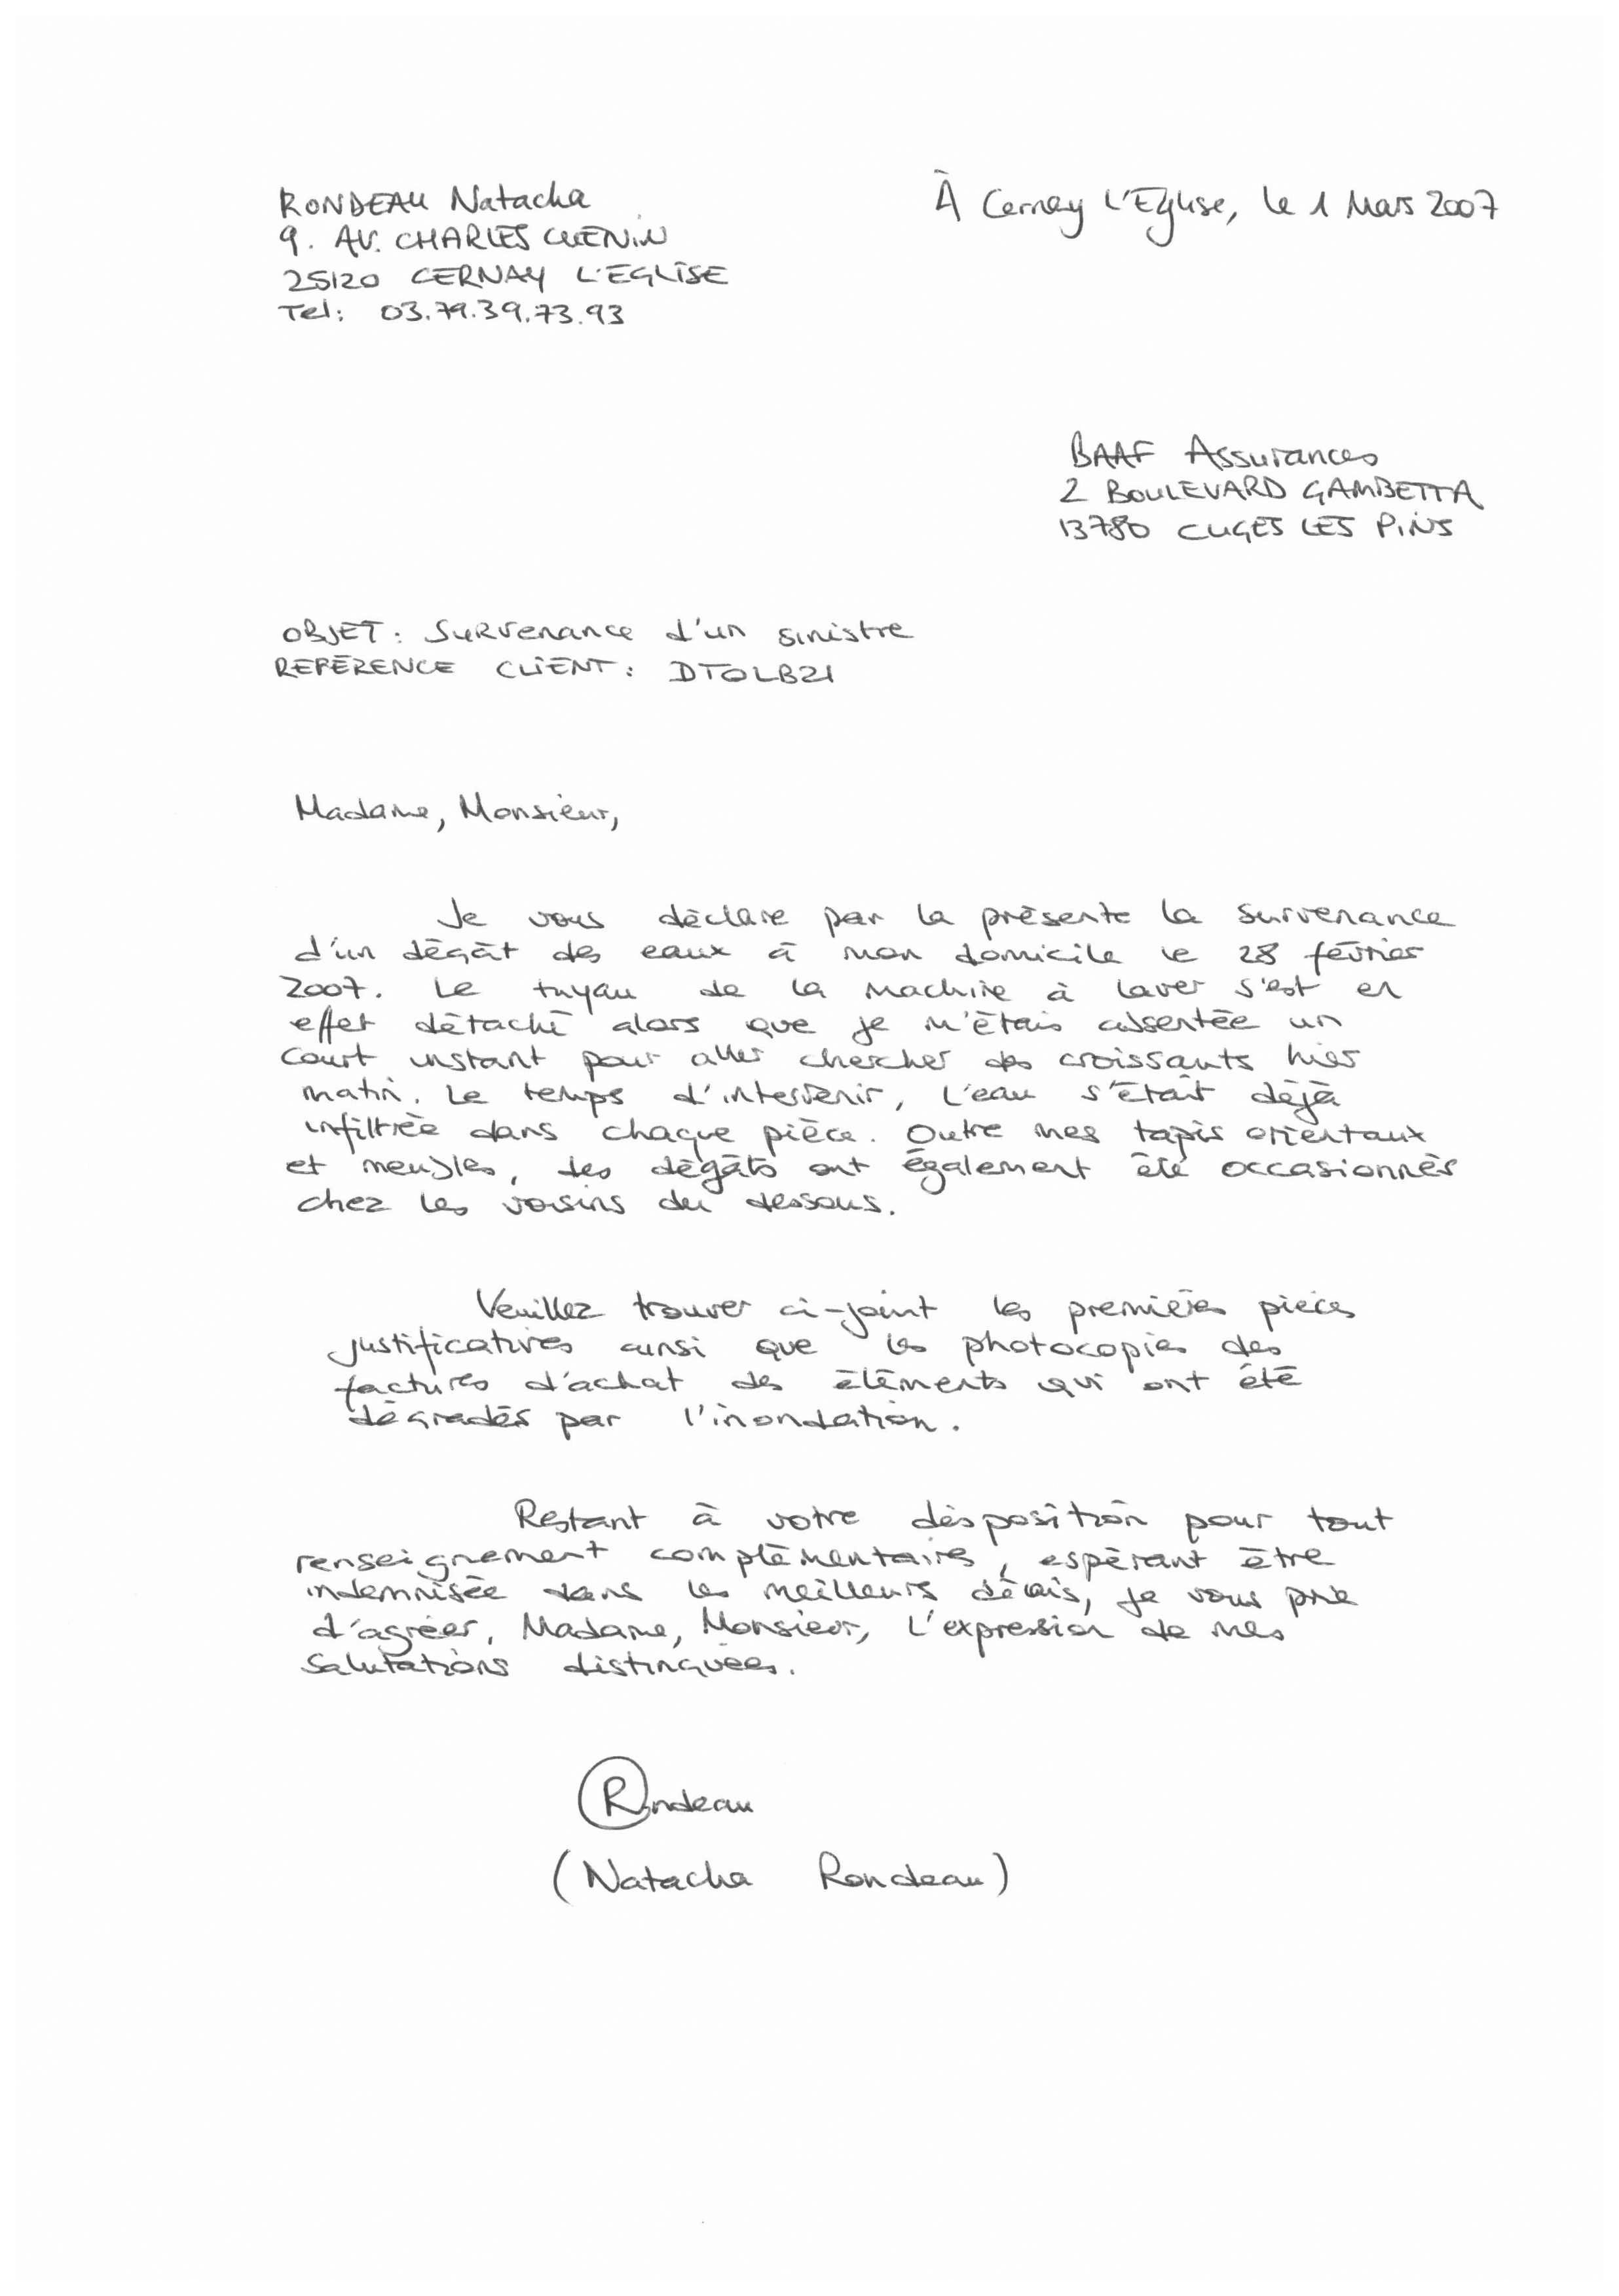 RONDEAU Natacha
9. AV. CHARLES CUENIN
25120 CERNAY L'EGLISE
Tel: 03.79.39.73.93
À Cernay L'Eglise, le 1 Mars 2007
BAAF Assurances
2 BOULEVARD GAMBETTA
13780 CUGES LES PINS
OBJET: Survenance d'un sinistre
REFERENCE CLIENT: DTOLB21
Madame, Monsieur,
Je vous déclare par la présente la survenance
d'un dégât des eaux à mon domicile le 28 février
2007. Le tuyau de la machine à laver s'est en
effet détaché alors que je m'étais absentée un
court instant pour aller chercher des croissants hier
matin. Le temps d'intervenir, l'eau s'était déjà
infiltrée dans chaque pièce. Outre mes tapis orientaux
et meubles, des dégâts ont également été occasionnés
chez les voisins du dessous.
Veuillez trouver ci-joint les premières pièces
justificatives ainsi que les photocopies des
factures d'achat des éléments qui ont été
dégradés par l'inondation.
Restant à votre disposition pour tout
renseignement complémentaire, espérant être
indemnisée dans les meilleurs délais, je vous prie
d'agréer, Madame, Monsieur, l'expression de mes
salutations distinguées.
Rondeau
(Natacha Rondeau)